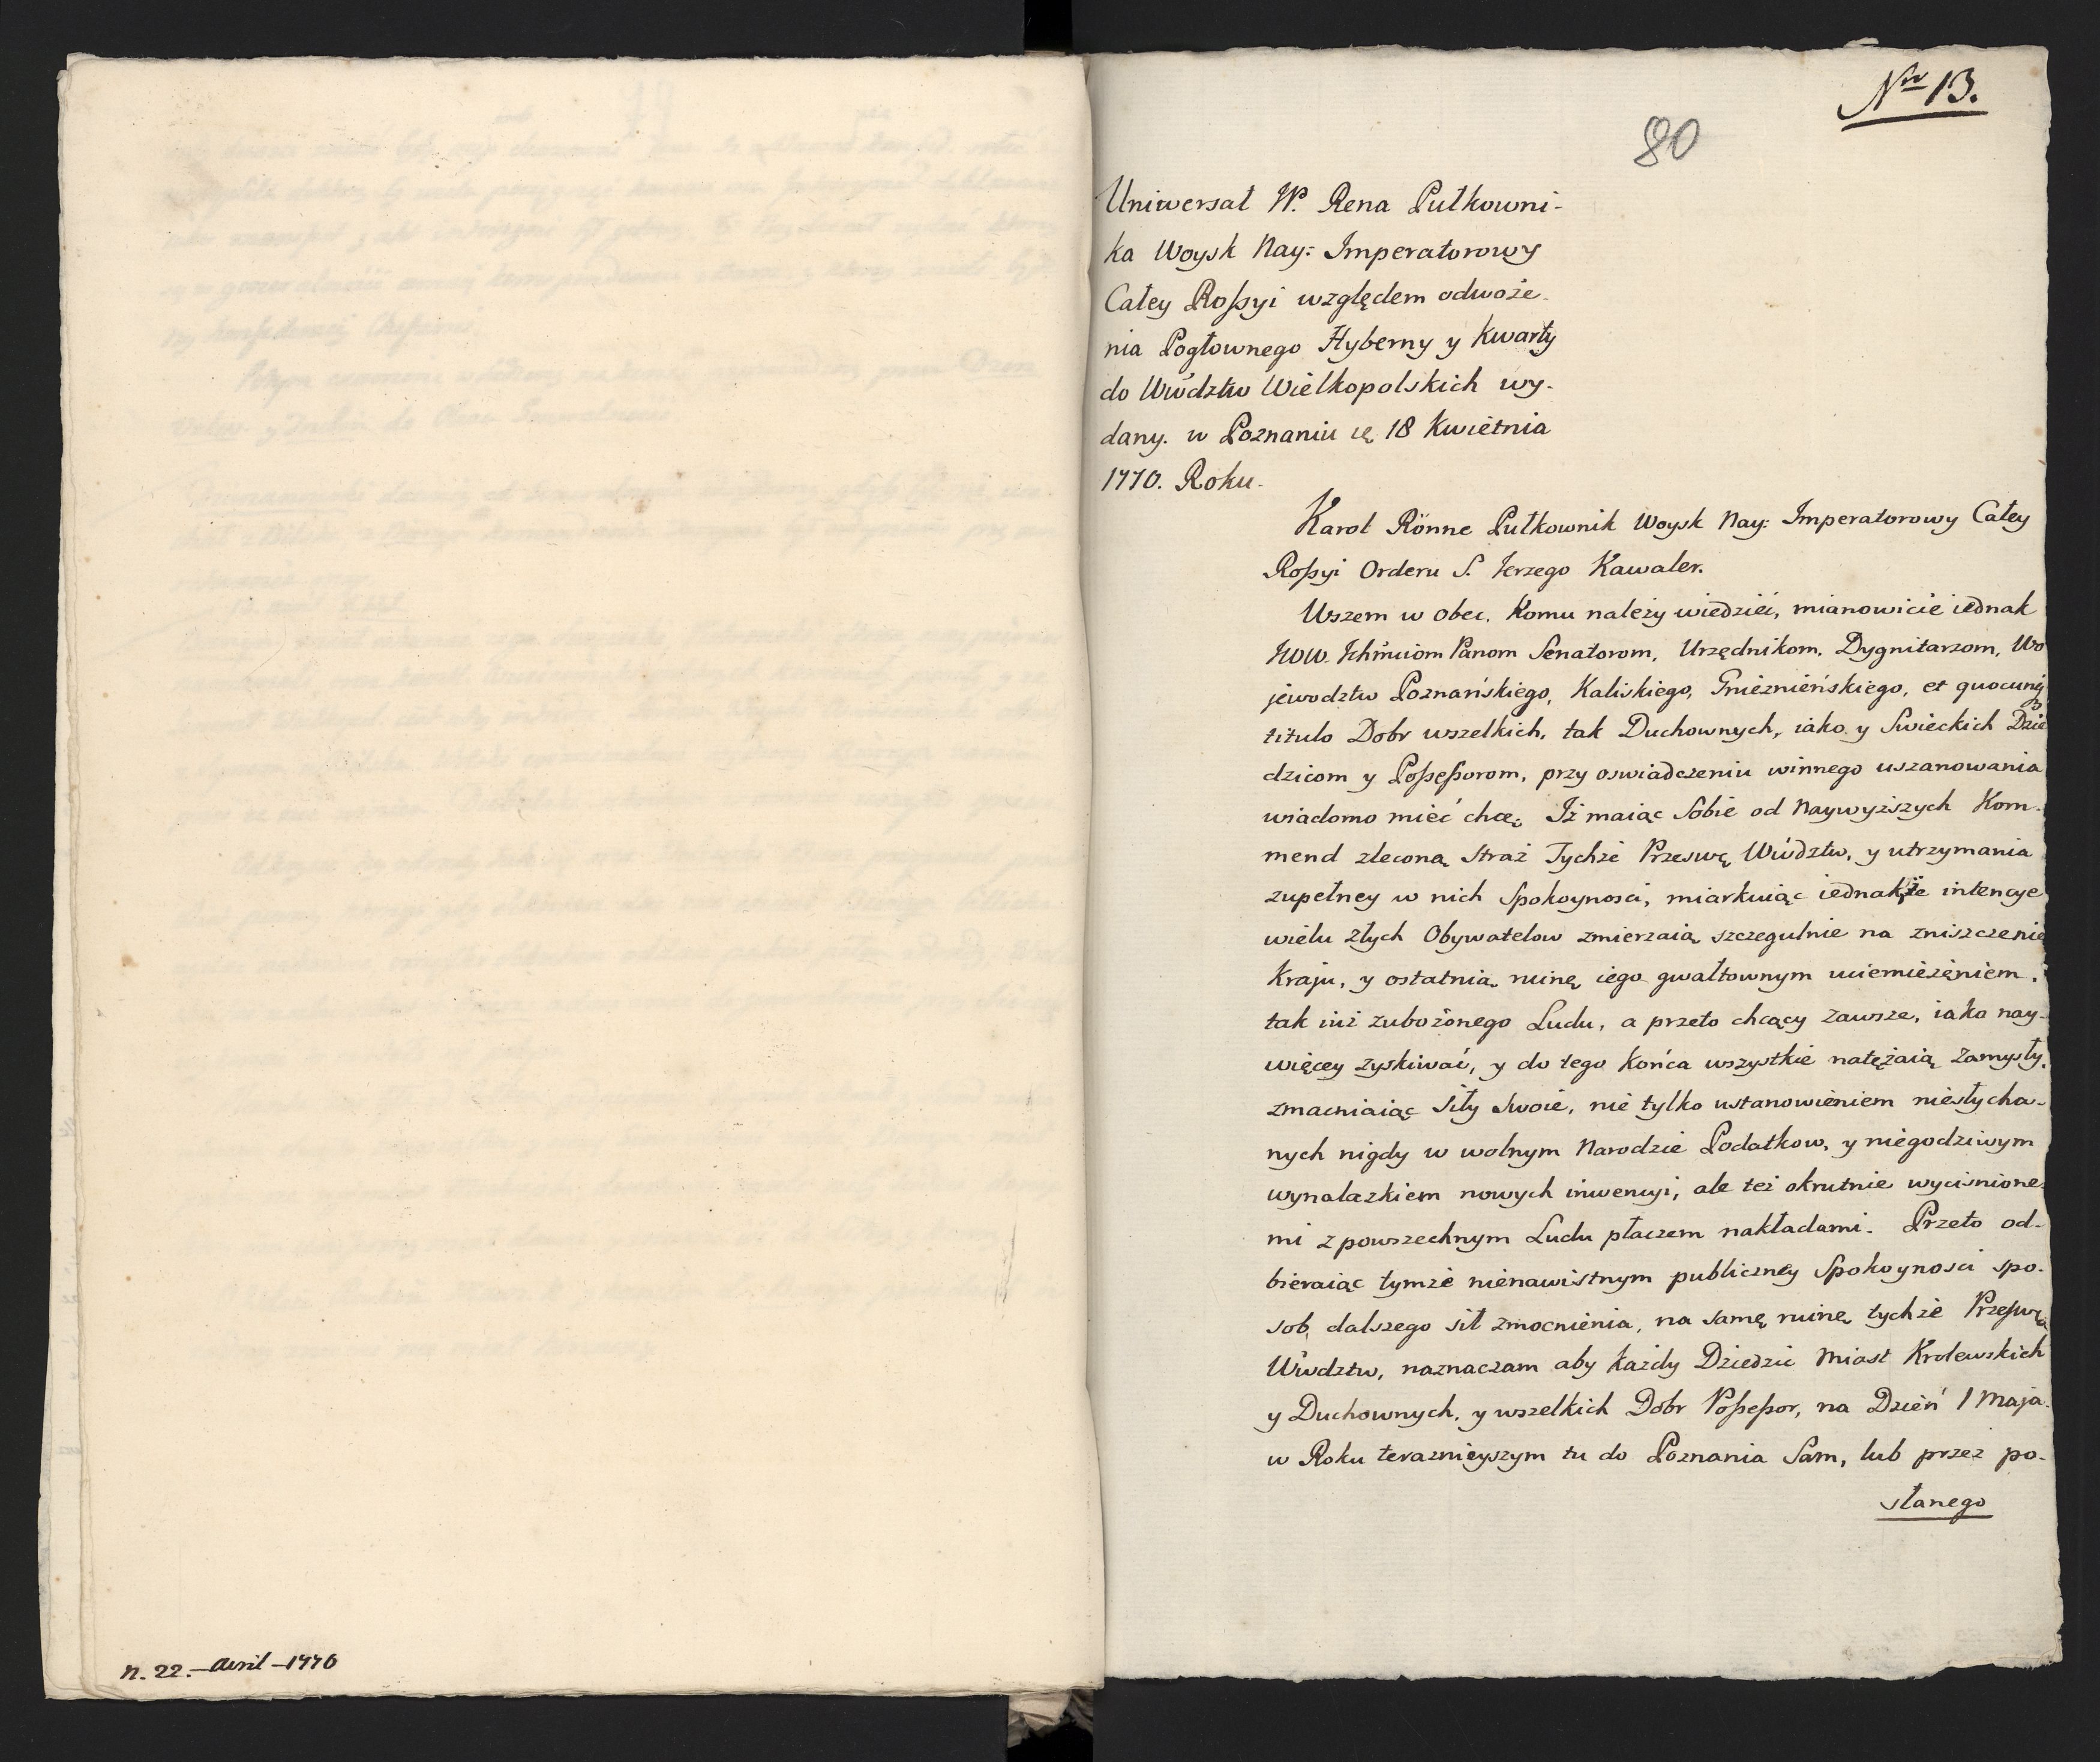 n. 22. — Avril — 1770
Nro 13.
80
Uniwersał W. Rena Pułkowni-
ka Woysk Nay: Imperatorowy
Całey Roßyi względem odwoże-
nia Pogłownego Hyberny y Kwarty
do Wwdztw Wielkopolskich wy-
dany. w Poznaniu 18 Kwietnia
1770. Roku.
Karol Rönne Pułkownik Woysk Nay: Imperatorowy Całey
Roßyi Orderu S. Jerzego Kawaler.
Wszem w obec. Komu należy wiedzieć, mianowicie iednak
JWW. Ichmciom Panom Senatorom, Urzędnikom, Dygnitarzom, Wo
jewodztw Poznańskiego, Kaliskiego, Gnieznieńskiego, et quocunq3
titulo Dobr wszelkich, tak Duchownych, iako y Swieckich Dzie
dzicom y Poßeßorom, przy oswiadczeniu winnego uszanowania
wiadomo mieć chcę; Iż maiąc sobie od Naywyższych Kom-
mend zleconą straż Tychże Przeswę Wwdztw, y utrzymania
zupełney w nich Spokoynosci, miarkuiąc iednakże intencye
wielu złych Obywatelow zmierzaią szczegulnie na zniszczenie
kraju, y ostatnią ruinę iego gwałtownym uciemieżeniem,
tak iuż zubożonego Ludu, a przeto chcący zawsze, iako nay-
więcey zyskiwać, y do tego końca wszystkie natężaią zamysły,
zmacniaiąc siły swoie, nie tylko ustanowieniem niesłycha-
nych nigdy w wolnym Narodzie Podatkow, y niegodziwym
wynalazkiem nowych inwencyi, ale też okrutnie wycisnione-
mi z powszechnym Ludu płaczem nakładami. Przeto od-
bieraiąc tymże nienawistnym publiczney Spokoynosci spo-
sob, dalszego sił zmocnienia, na samę ruinę tychże Przeswę
Wwdztw, naznaczam aby każdy Dziedzic Miast Krolewskich
y Duchownych, y wszelkich Dobr Poßeßor, na Dzień 1 Maja
w Roku teraznieyszym tu do Poznania Sam, lub przez po-
słanego